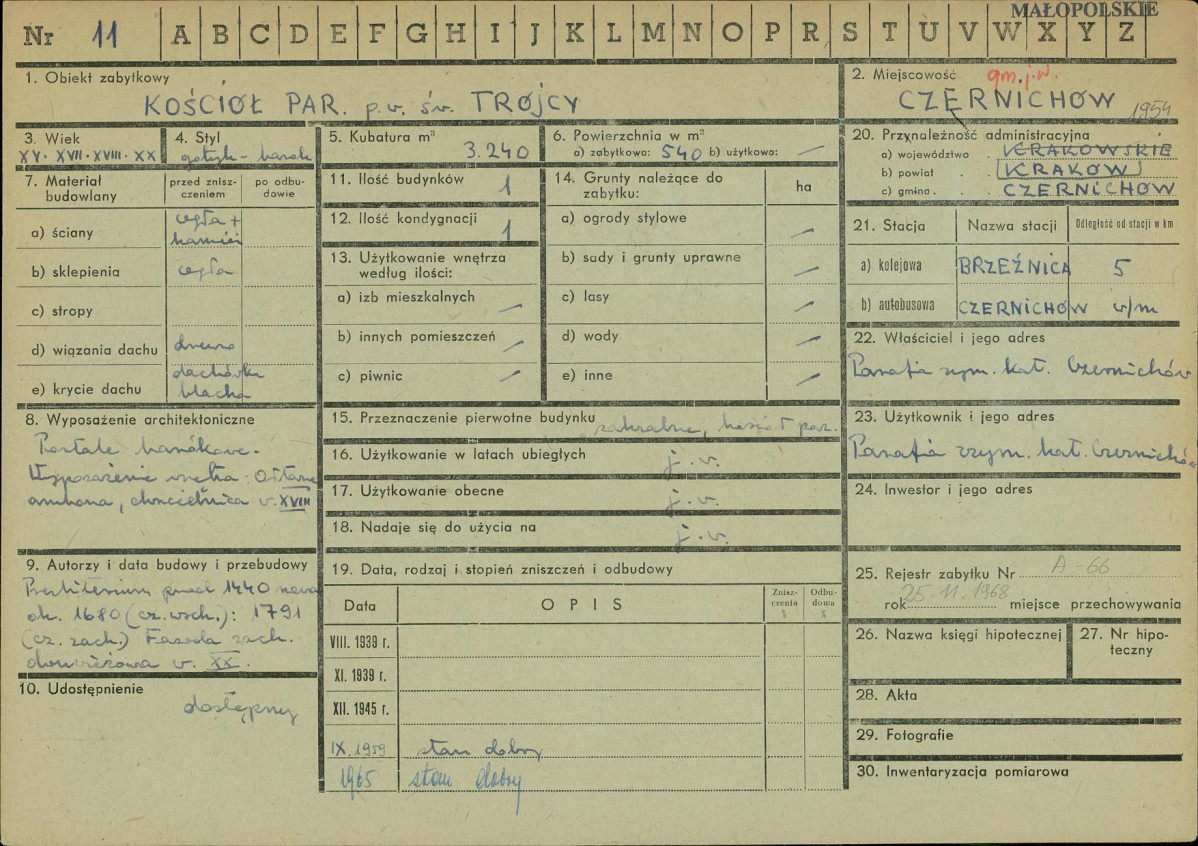 MAŁOPOLSKIE
Nr 11 A B C D E F G H I J K L M N O P R S T U V W X Y Z
1. Obiekt zabytkowy
KOŚCIÓŁ PAR. p.w. św. TRÓJCY
2. Miejscowość gm. j.w.
CZERNICHÓW 1954
3. Wiek
XV · XVII · XVIII · XX
4. Styl
gotyk - barok
5. Kubatura m³
3.240
6. Powierzchnia w m²
a) zabytkowa: 540 b) użytkowa: —
7. Materiał budowlany
przed zniszczeniem
po odbudowie
a) ściany
cegła + kamień
b) sklepienia cegła
c) stropy
d) wiązania dachu drewno
e) krycie dachu
dachówka
blacha
8. Wyposażenie architektoniczne
Portale barokowe.
Wyposażenie wnętrza: Ołtarze
ambona, chrzcielnica w. XVIII
9. Autorzy i data budowy i przebudowy
Prezbiterium przed 1440 nawa
ok. 1680 (cz. wsch.): 1791
(cz. zach.) Fasada zach.
dwuwieżowa w. XX.
10. Udostępnienie
dostępny
11. Ilość budynków 1
12. Ilość kondygnacji 1
13. Użytkowanie wnętrza
według ilości:
a) izb mieszkalnych —
b) innych pomieszczeń —
c) piwnic —
14. Grunty należące do
zabytku:
ha
a) ogrody stylowe —
b) sady i grunty uprawne —
c) lasy —
d) wody —
e) inne —
15. Przeznaczenie pierwotne budynku sakralne, kościół par.
16. Użytkowanie w latach ubiegłych j.w.
17. Użytkowanie obecne j.w.
18. Nadaje się do użycia na j.w.
19. Data, rodzaj i stopień zniszczeń i odbudowy
Data
OPIS
Zniszczenia %
Odbudowa %
VIII. 1939 r.
XI. 1939 r.
XII. 1945 r.
IX. 1959 stan dobry
1965 stan dobry
20. Przynależność administracyjna
a) województwo . KRAKOWSKIE
b) powiat . . KRAKÓW
c) gmina . . CZERNICHÓW
21. Stacja
Nazwa stacji
Odległość od stacji w km
a) kolejowa BRZEŹNICA 5
b) autobusowa CZERNICHÓW w/m
22. Właściciel i jego adres
Parafia rzym. kat. Czernichów
23. Użytkownik i jego adres
Parafia rzym. kat. Czernichów
24. Inwestor i jego adres
25. Rejestr zabytku Nr A-66
rok 25.11.1968 miejsce przechowywania
26. Nazwa księgi hipotecznej
27. Nr hipoteczny
28. Akta
29. Fotografie
30. Inwentaryzacja pomiarowa